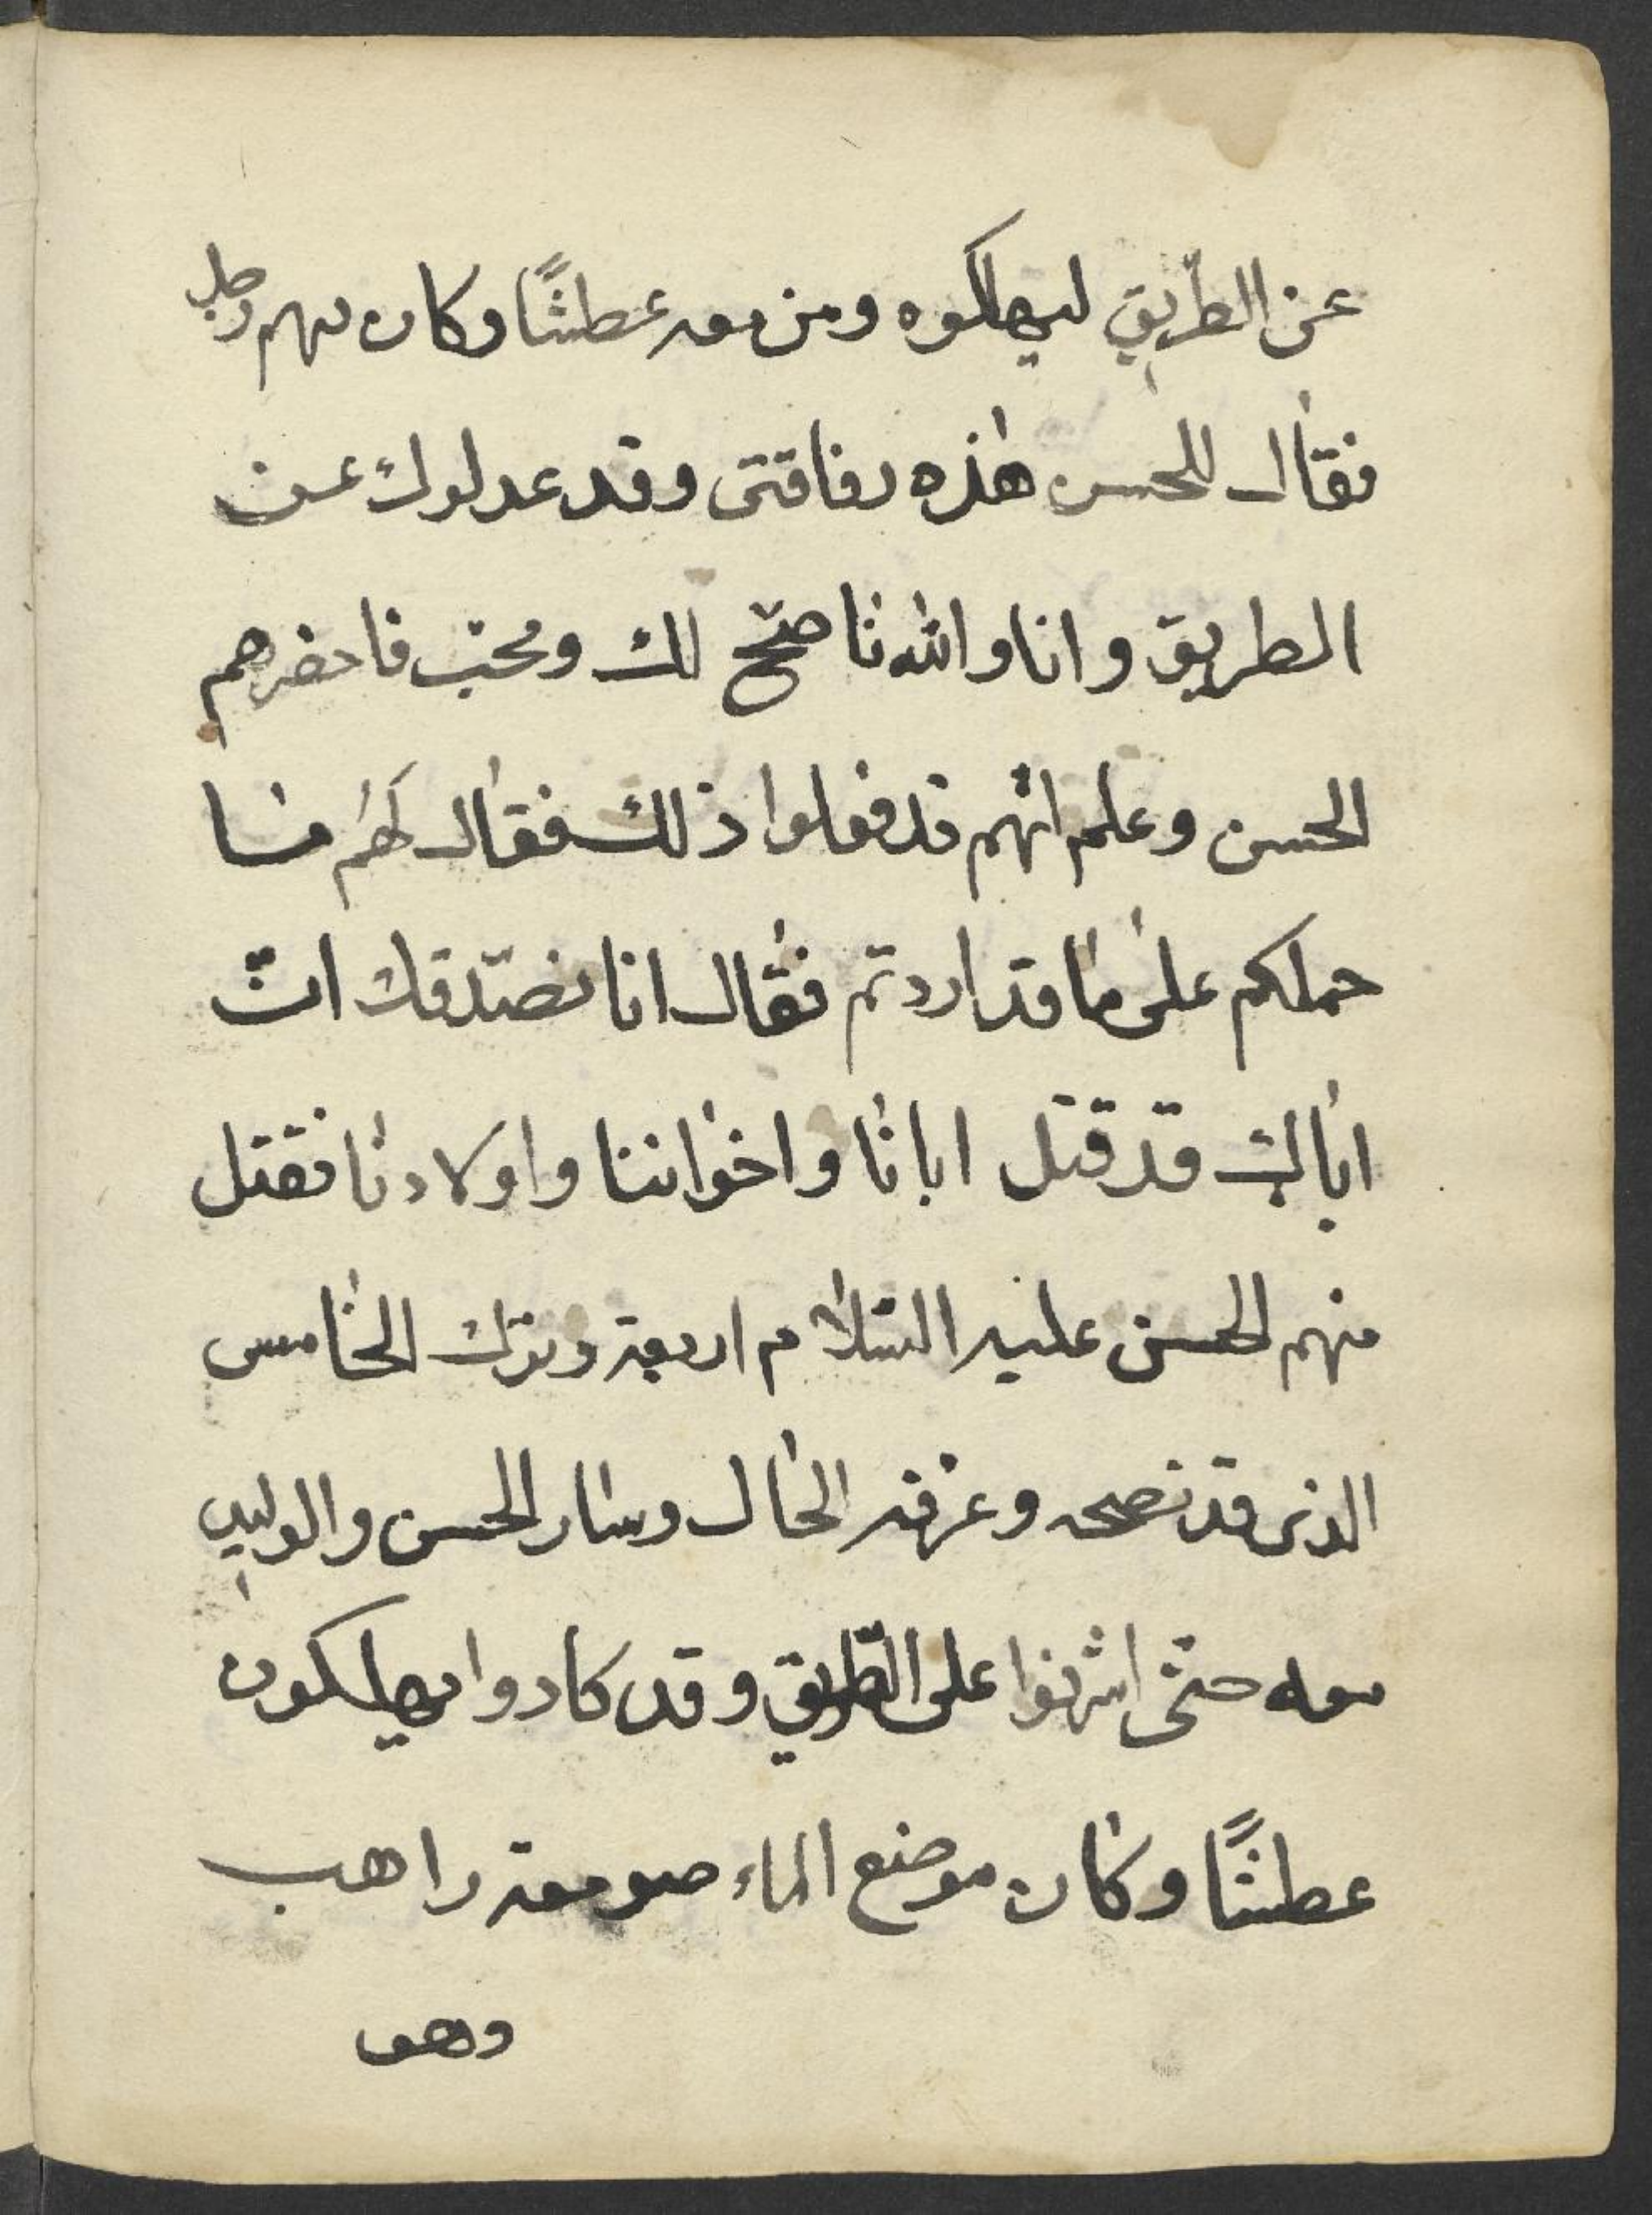 عن الطريق ليهلكوه ومن معه عطشًا وكان منهم رجل
فقال للحسن هذه رفاقتى وقد عدلوك عن
الطريق وانا والله ناصح لك ومحب فاحضرهم
الحسن وعلم انهم قد فعلوا ذلك فقال لهم ما
حملكم على ما قد اردتم فقال انا نصدقك انّ
اباك قد قتل ابانا واخواننا واولادنا فقتل
منهم الحسن عليه السّلام اربعة وترك الخامس
الذى قد نصحه وعرفه الحال وسار الحسن والوليد
معه حتى اشرفوا على الطريق وقد كادوا يهلكون
عطشًا وكان موضع الماء صومعة راهب
وهو